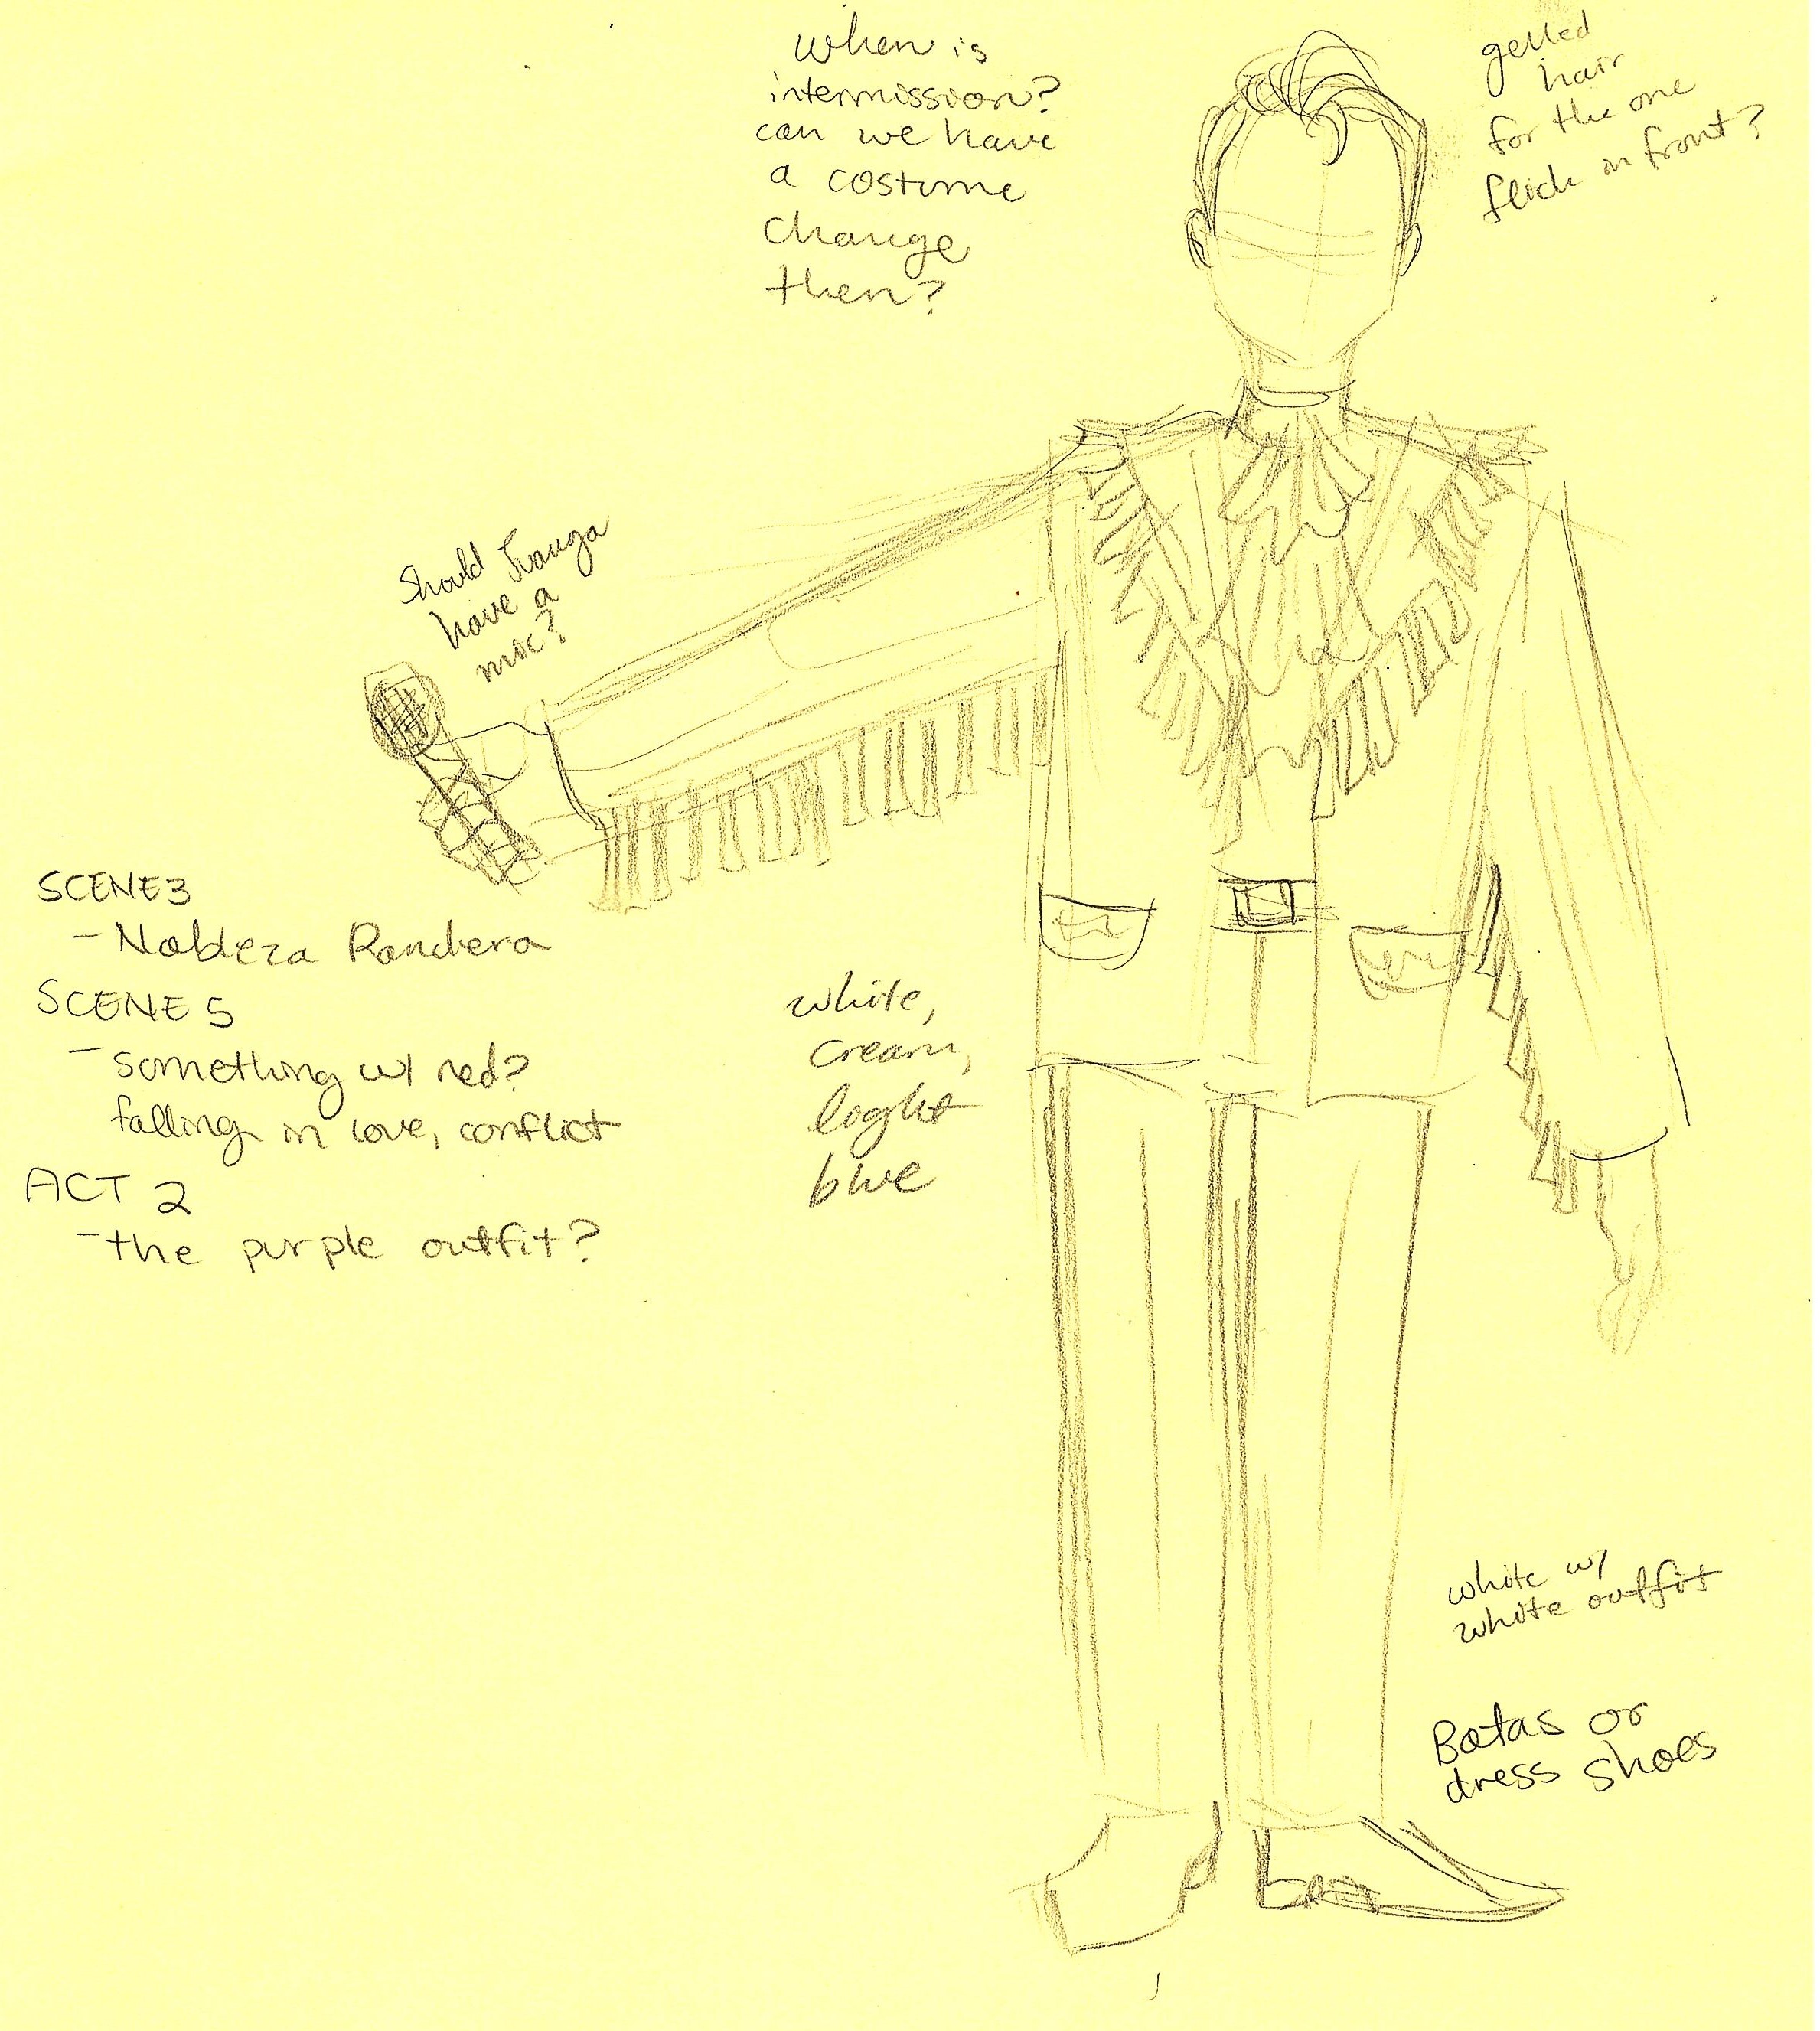 when is
intermission?
can we have
a costume
change
then?
gelled
hair
for the one
flick in front?
Should Juanga
have a
mic?
SCENE 3
- Nobleza Ranchera
SCENE 5
- something w/ red?
falling in love, conflict
ACT 2
- the purple outfit?
white,
cream,
light
blue
white w/
white outfit
Botas or
dress shoes